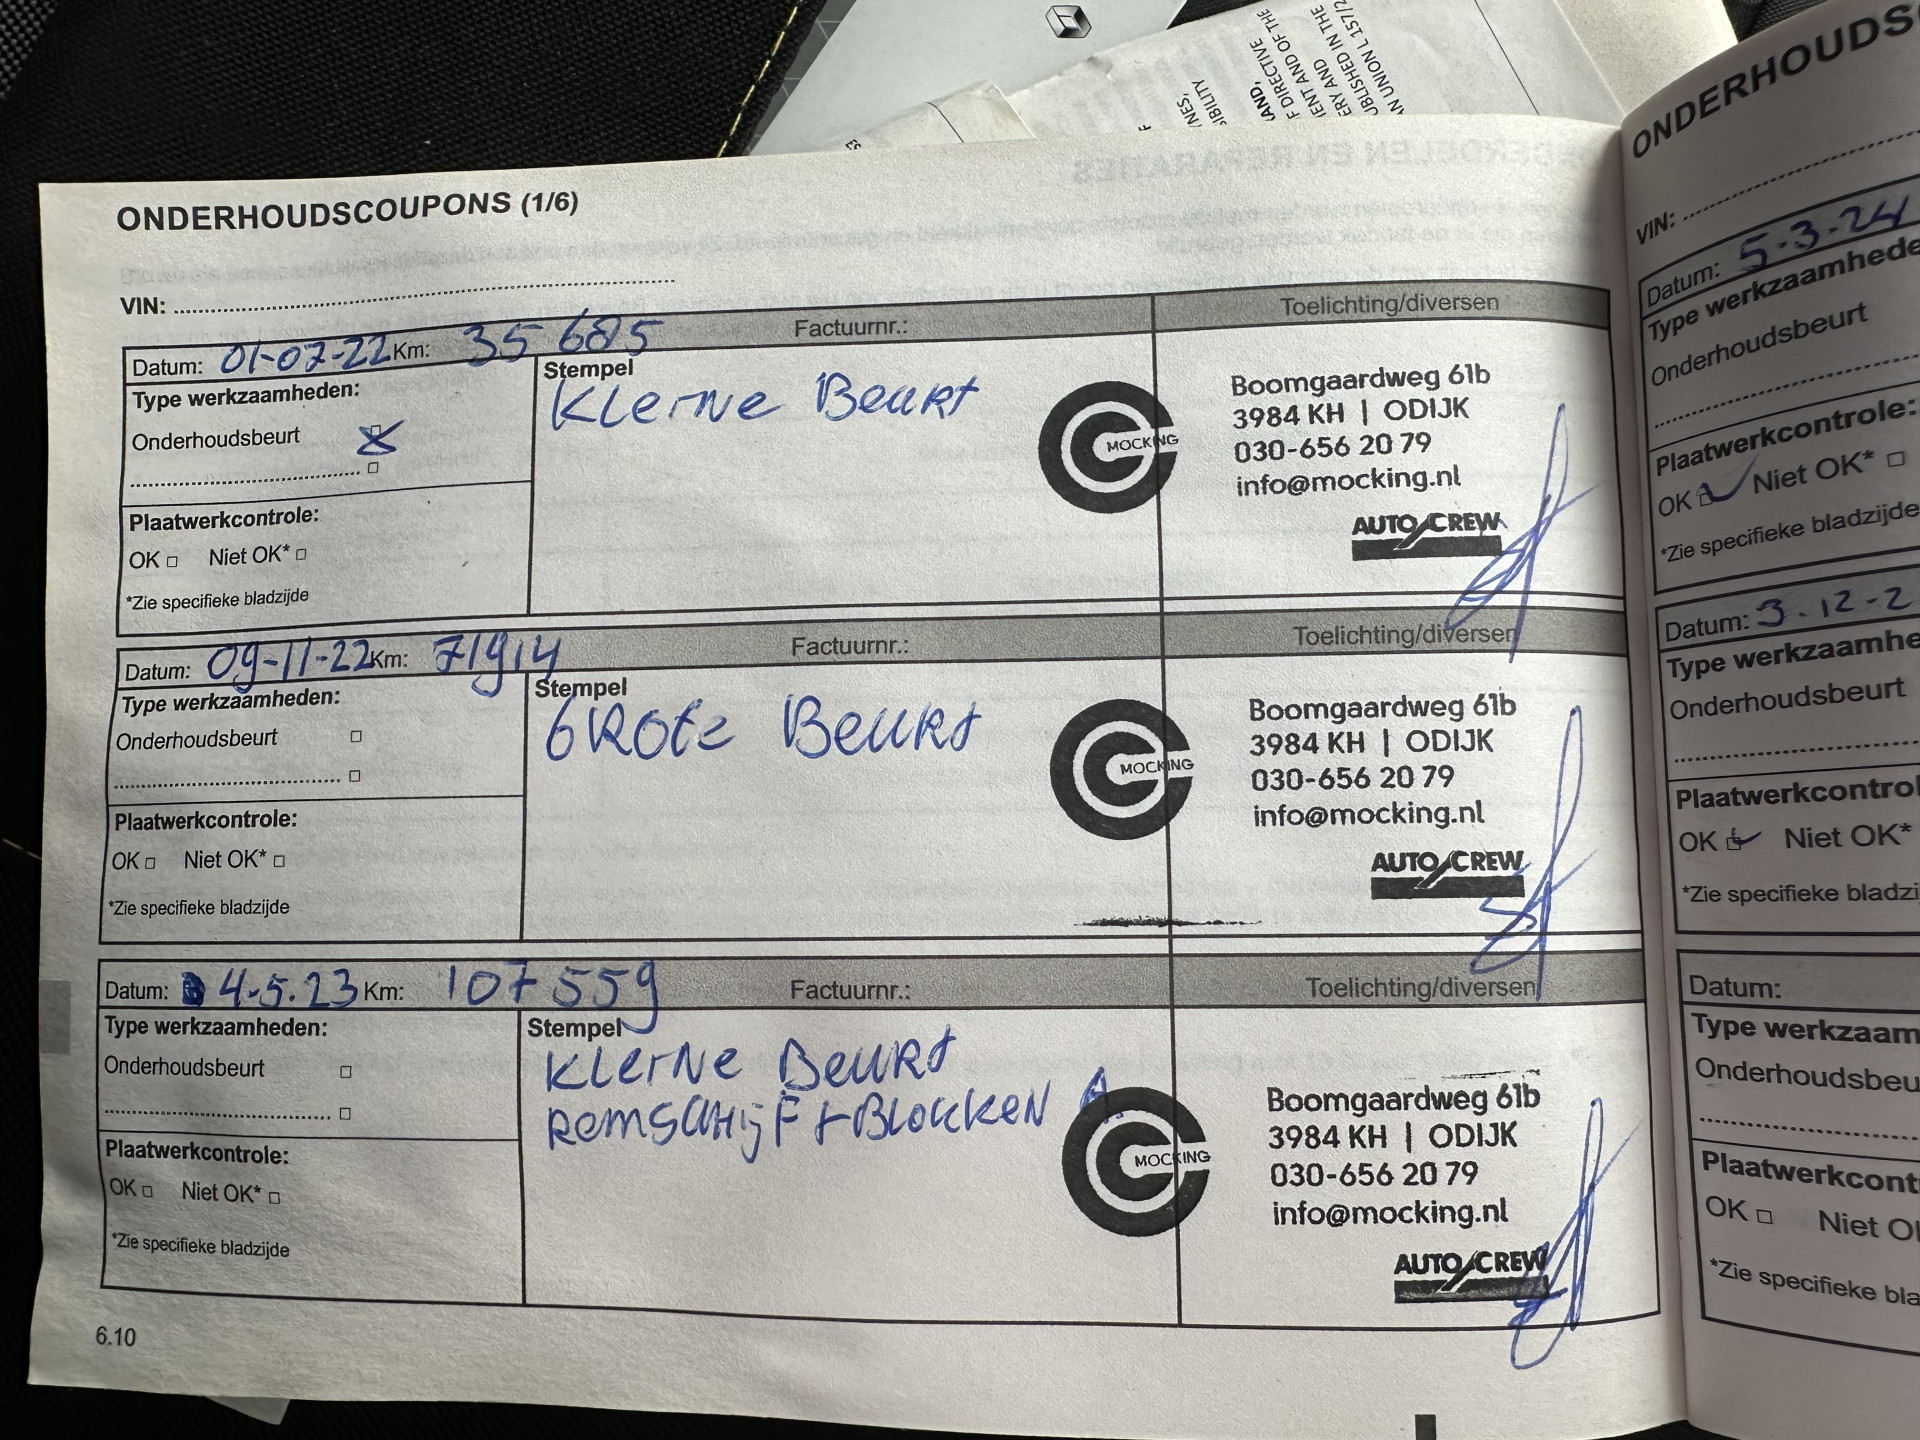 AND,
F DIRECTIVE
IENT AND OF THE
ERY AND
UBLISHED IN THE
AN UNION L 157/2
INES,
SIBILITY
53
ONDERHOUDSCOUPONS (1/6)
VIN:
Datum: 01-07-22 Km: 35 685 Factuurnr.: Toelichting/diversen
Type werkzaamheden:
Onderhoudsbeurt
Plaatwerkcontrole:
OK Niet OK*
*Zie specifieke bladzijde
Stempel
Kleine Beurt
MOCKING
Boomgaardweg 61b
3984 KH | ODIJK
030-656 20 79
info@mocking.nl
AUTO CREW
Datum: 09-11-22 Km: 71914 Factuurnr.: Toelichting/diversen
Type werkzaamheden:
Onderhoudsbeurt
Plaatwerkcontrole:
OK Niet OK*
*Zie specifieke bladzijde
Stempel
GRote Beurt
MOCKING
Boomgaardweg 61b
3984 KH | ODIJK
030-656 20 79
info@mocking.nl
AUTO CREW
Datum: 4-5-23 Km: 107 559 Factuurnr.: Toelichting/diversen
Type werkzaamheden:
Onderhoudsbeurt
Plaatwerkcontrole:
OK Niet OK*
*Zie specifieke bladzijde
Stempel
Kleine Beurt
Remschijf + Blokken A.
MOCKING
Boomgaardweg 61b
3984 KH | ODIJK
030-656 20 79
info@mocking.nl
AUTO CREW
6.10
ONDERHOUDS
VIN:
Datum: 5-3-24
Type werkzaamhede
Onderhoudsbeurt
Plaatwerkcontrole:
OK Niet OK*
*Zie specifieke bladzijde
Datum: 3-12-2
Type werkzaamhe
Onderhoudsbeurt
Plaatwerkcontrol
OK Niet OK*
*Zie specifieke bladzi
Datum:
Type werkzaam
Onderhoudsbeu
Plaatwerkcont
OK Niet O
*Zie specifieke bla